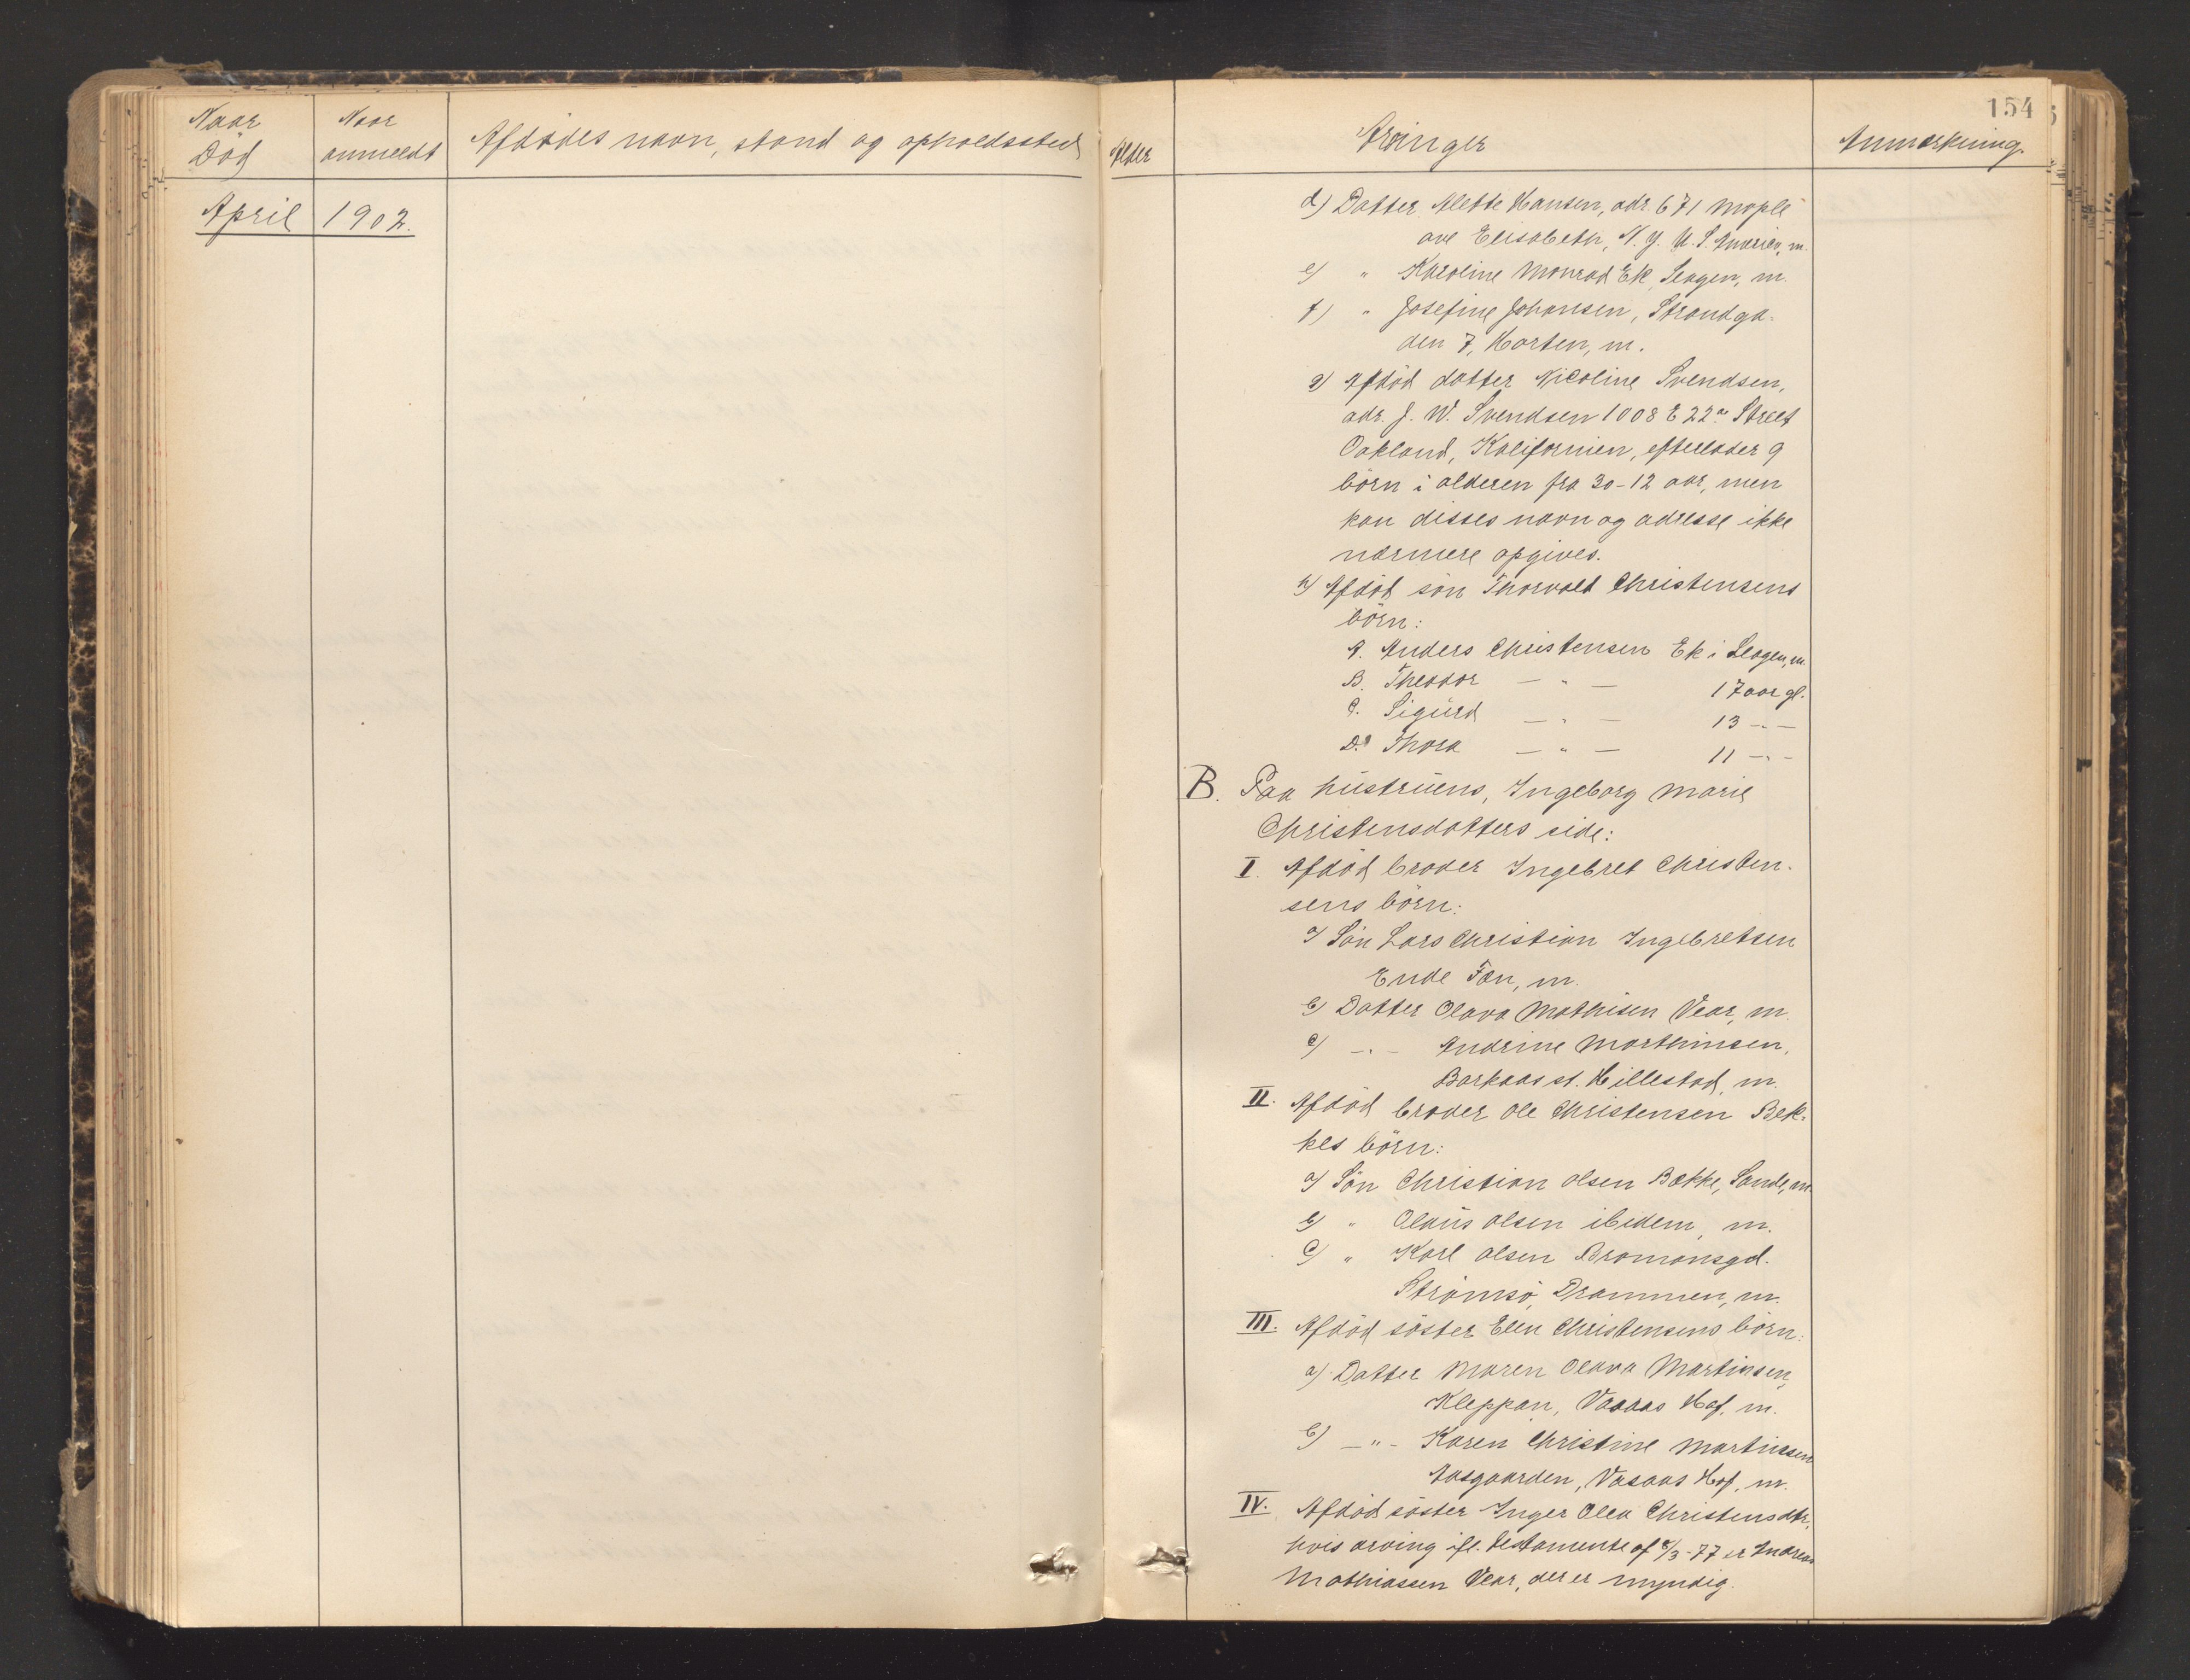 154
Naar
Död
Naar
anmeldt
Afdödes navn, stand og opholdssted
Alder
Arvinger
Anmærkning.
April 1902.
d) Datter Alette Hansen, adr. 671 Maple
ave Elisabeth, N. Y. U. S. America, m.
e) " Karoline Monrad Ek, Slagen, m.
f) " Josefine Johansen, Strandga-
den 7, Horten, m.
g) Afdöd datter Nicoline Svendsen,
adr. J. W. Svendsen 1008 E 22n Street
Oakland, Kalifornien, efterlader 9
börn i alderen fra 30-12 aar, men
kan disses navn og adresse ikke
nærmere opgives.
h) Afdöd sön Thorvald Christensens
börn:
A. Anders Christensen Ek i Slagen, m.
B. Theodor — " — 17 aar gl.
C. Sigurd — " — 13 -"-
D. Thora — " — 11 -"-
B. Paa hustruens, Ingeborg Marie
Christensdatters side:
I. Afdöd broder Ingebret Christen-
sens börn:
a) Sön Lars Christian Ingebretsen
Ende Fon, m.
b) Datter Olava Mathisen Vear, m.
c) -"- Andrine Marthinsen,
Barkaas st. Hillestad, m.
II. Afdöd broder Ole Christensen Bek-
kes börn:
a) Sön Christian Olsen Bække, Sande, m.
b) " Olaus Olsen ibidem, m.
c) " Karl Olsen Bromansgd.
Strömsö, Drammen, m.
III. Afdöd söster Elen Christensens börn:
a) Datter Maren Olava Martinsen,
Kleppan, Vasaas Hof, m.
b) -"- Karen Christine Martinsen
Aasgaarden, Vasaas Hof, m.
IV. Afdöd söster Inger Olea Christensdtr,
hvis arving ifl. testamente af 8/3-77 er Andreas
Mathiassen Vear, der er myndig.